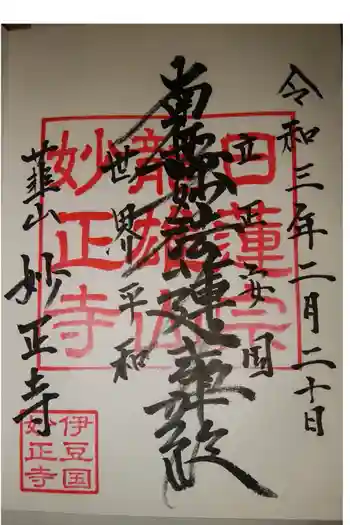 令和三年二月二十日
立正安国
南無妙法蓮華経
世界平和
韮山 妙正寺
日蓮宗
龍雄山
妙正寺
伊豆国
妙正寺